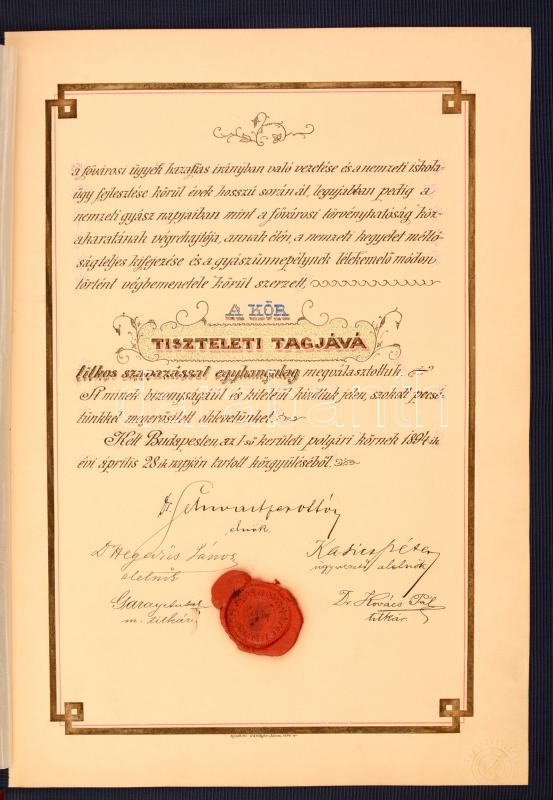 a fővárosi ügyek hazafias irányban való vezetése és a nemzeti iskola-
ügy fejlesztése körül évek hosszú során át, legujabban pedig a
nemzeti gyász napjaiban mint a fővárosi törvényhatóság köz-
akaratának végrehajtója, annak élén, a nemzeti kegyelet méltó-
ságteljes kifejezése és a gyászünnepélynek lélekemelő módon
történt végbemenetele körül szerzett,
A KÖR
TISZTELETI TAGJÁVÁ
titkos szavazással egyhangulag megválasztottuk.
A minek bizonyságául és hiteléül kiadtuk jelen, szokott pecsé-
tünkkel megerősített oklevelünket.
Kelt Budapesten, az I ső kerületi polgári körnek 1894 ik
évi április 28 ik napján tartott közgyüléséből.
Dr.
elnök.
Dr Hegedüs János
alelnök
Kasics Péter
ügyvezető alelnök
Garay Antal
m. titkár
Dr. Kovács Pál
titkár.